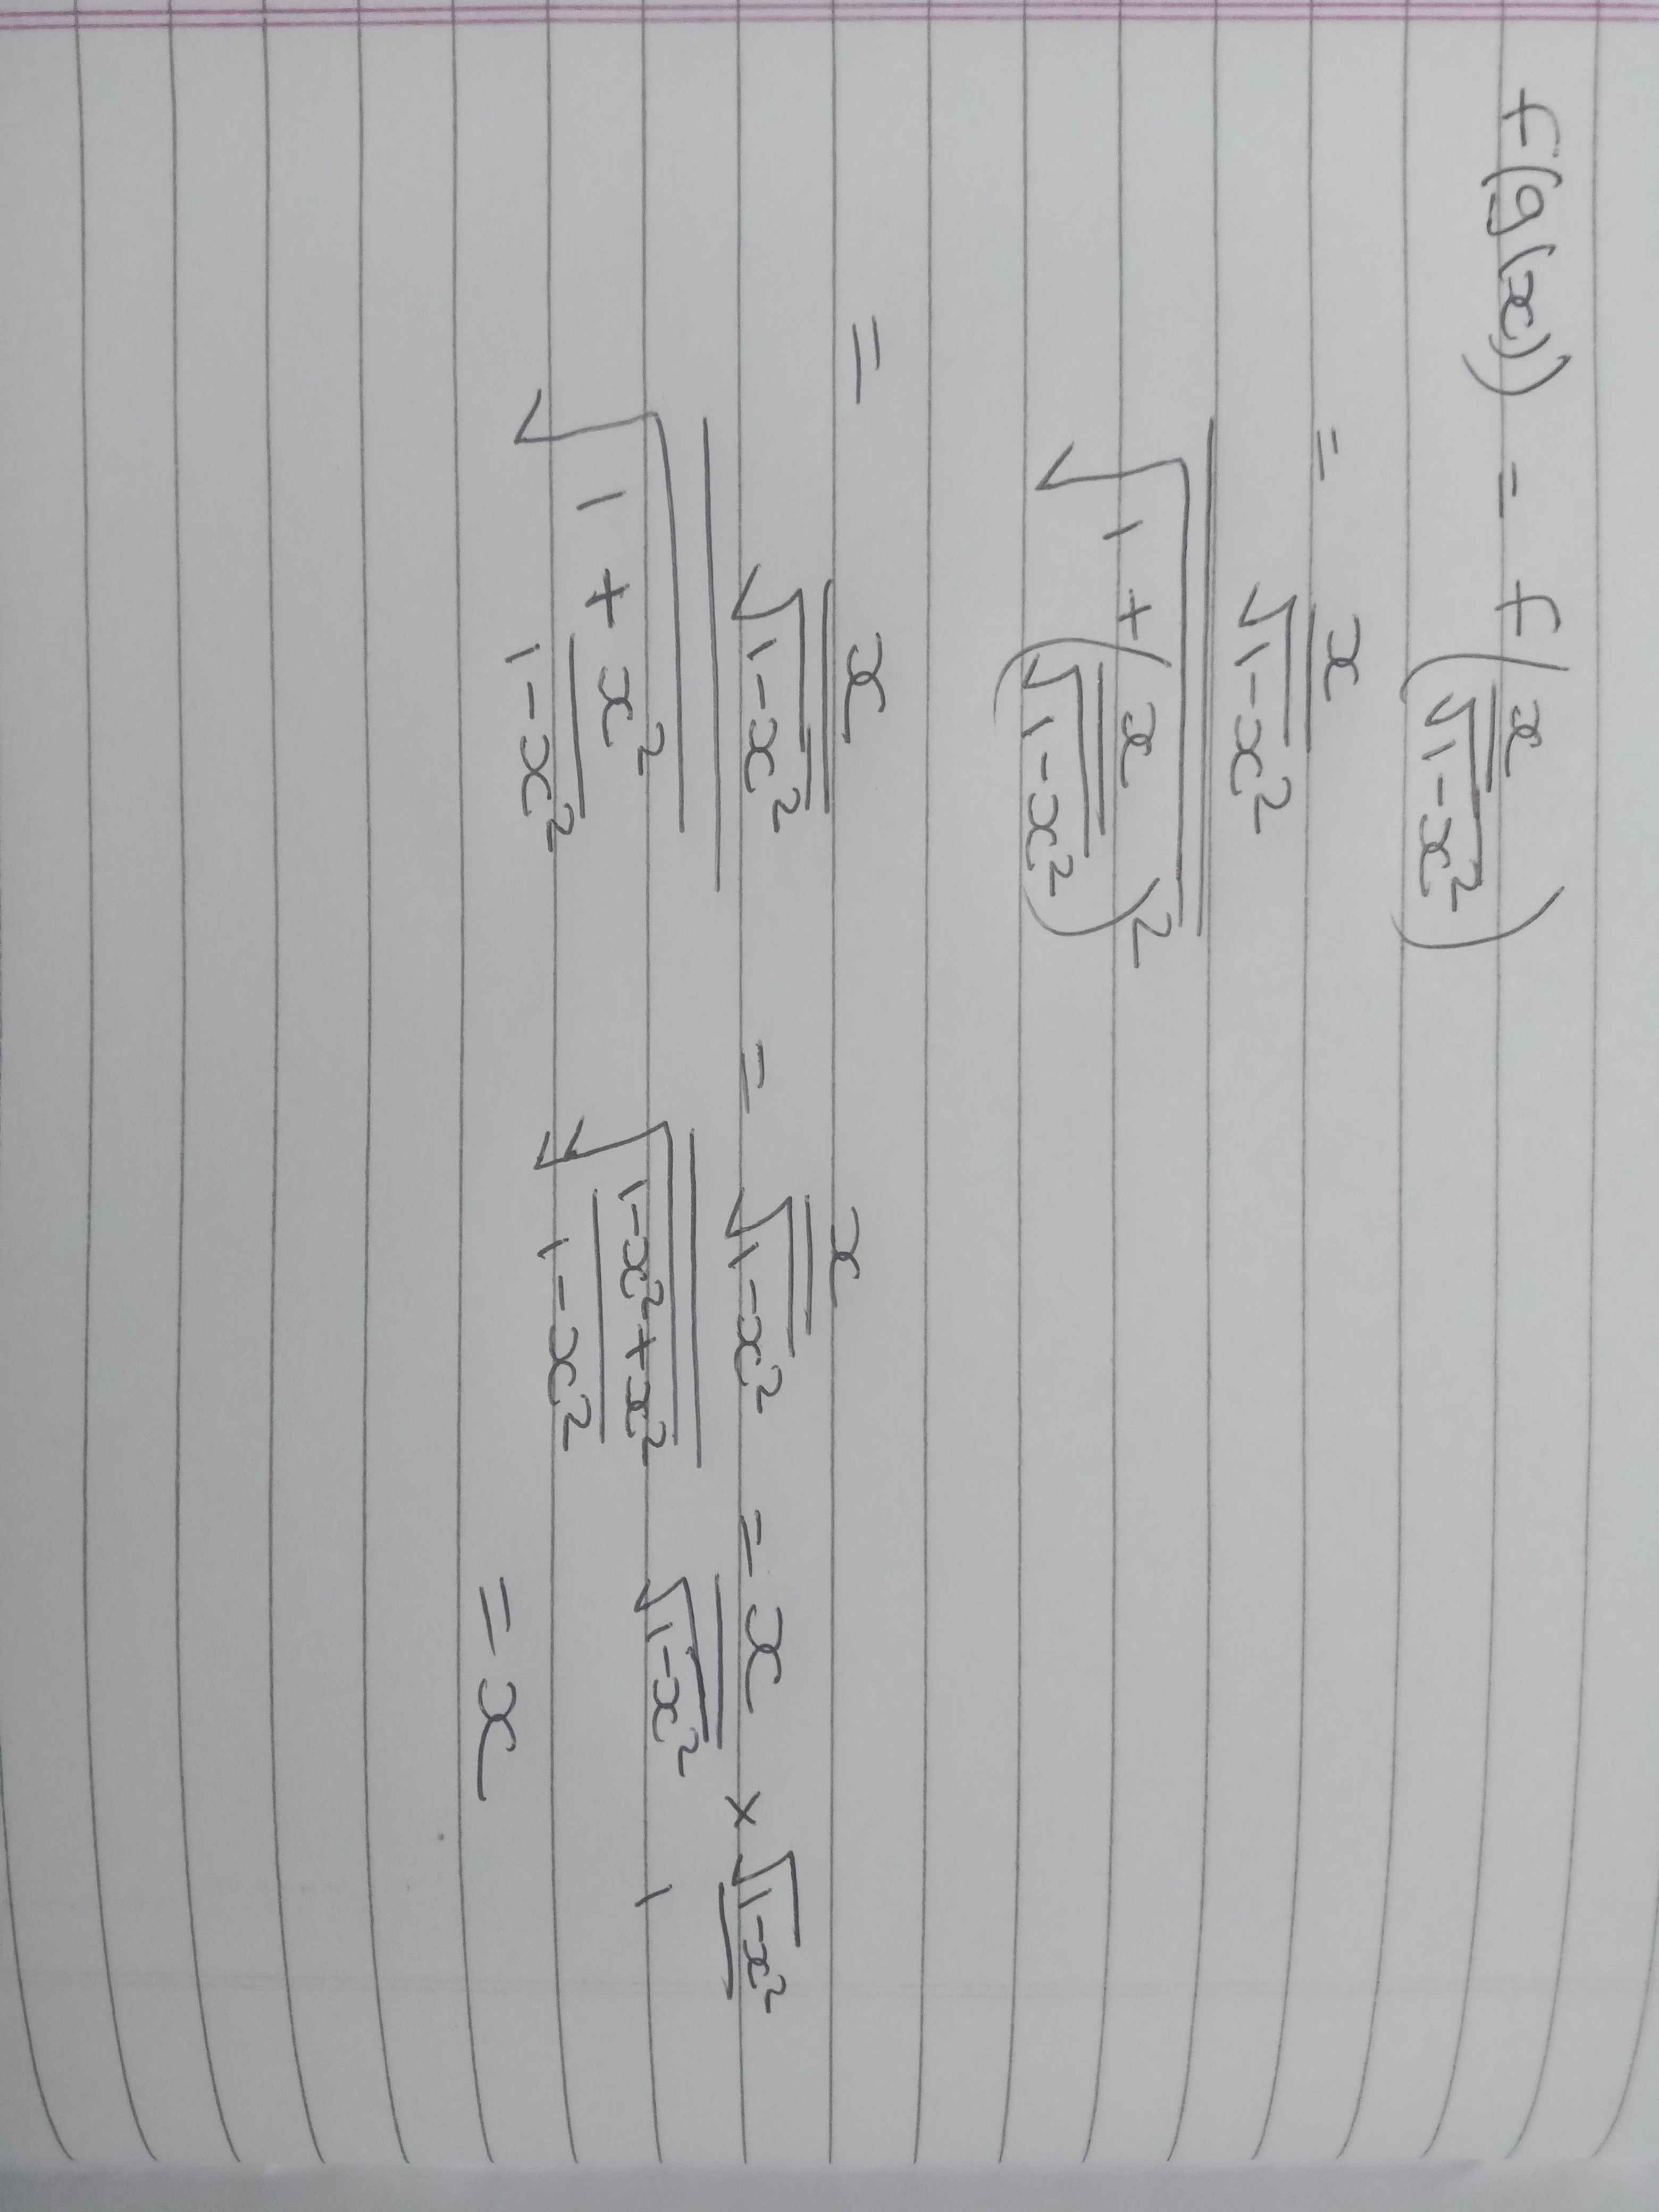 f(g(x)) = f(x/√(1-x²))
= (x/√(1-x²)) / √(1 + (x/√(1-x²))²)
= (x/√(1-x²)) / √(1 + x²/(1-x²)) = (x/√(1-x²)) / √((1-x²+x²)/(1-x²)) = x/√(1-x²) × √(1-x²)/1
= x